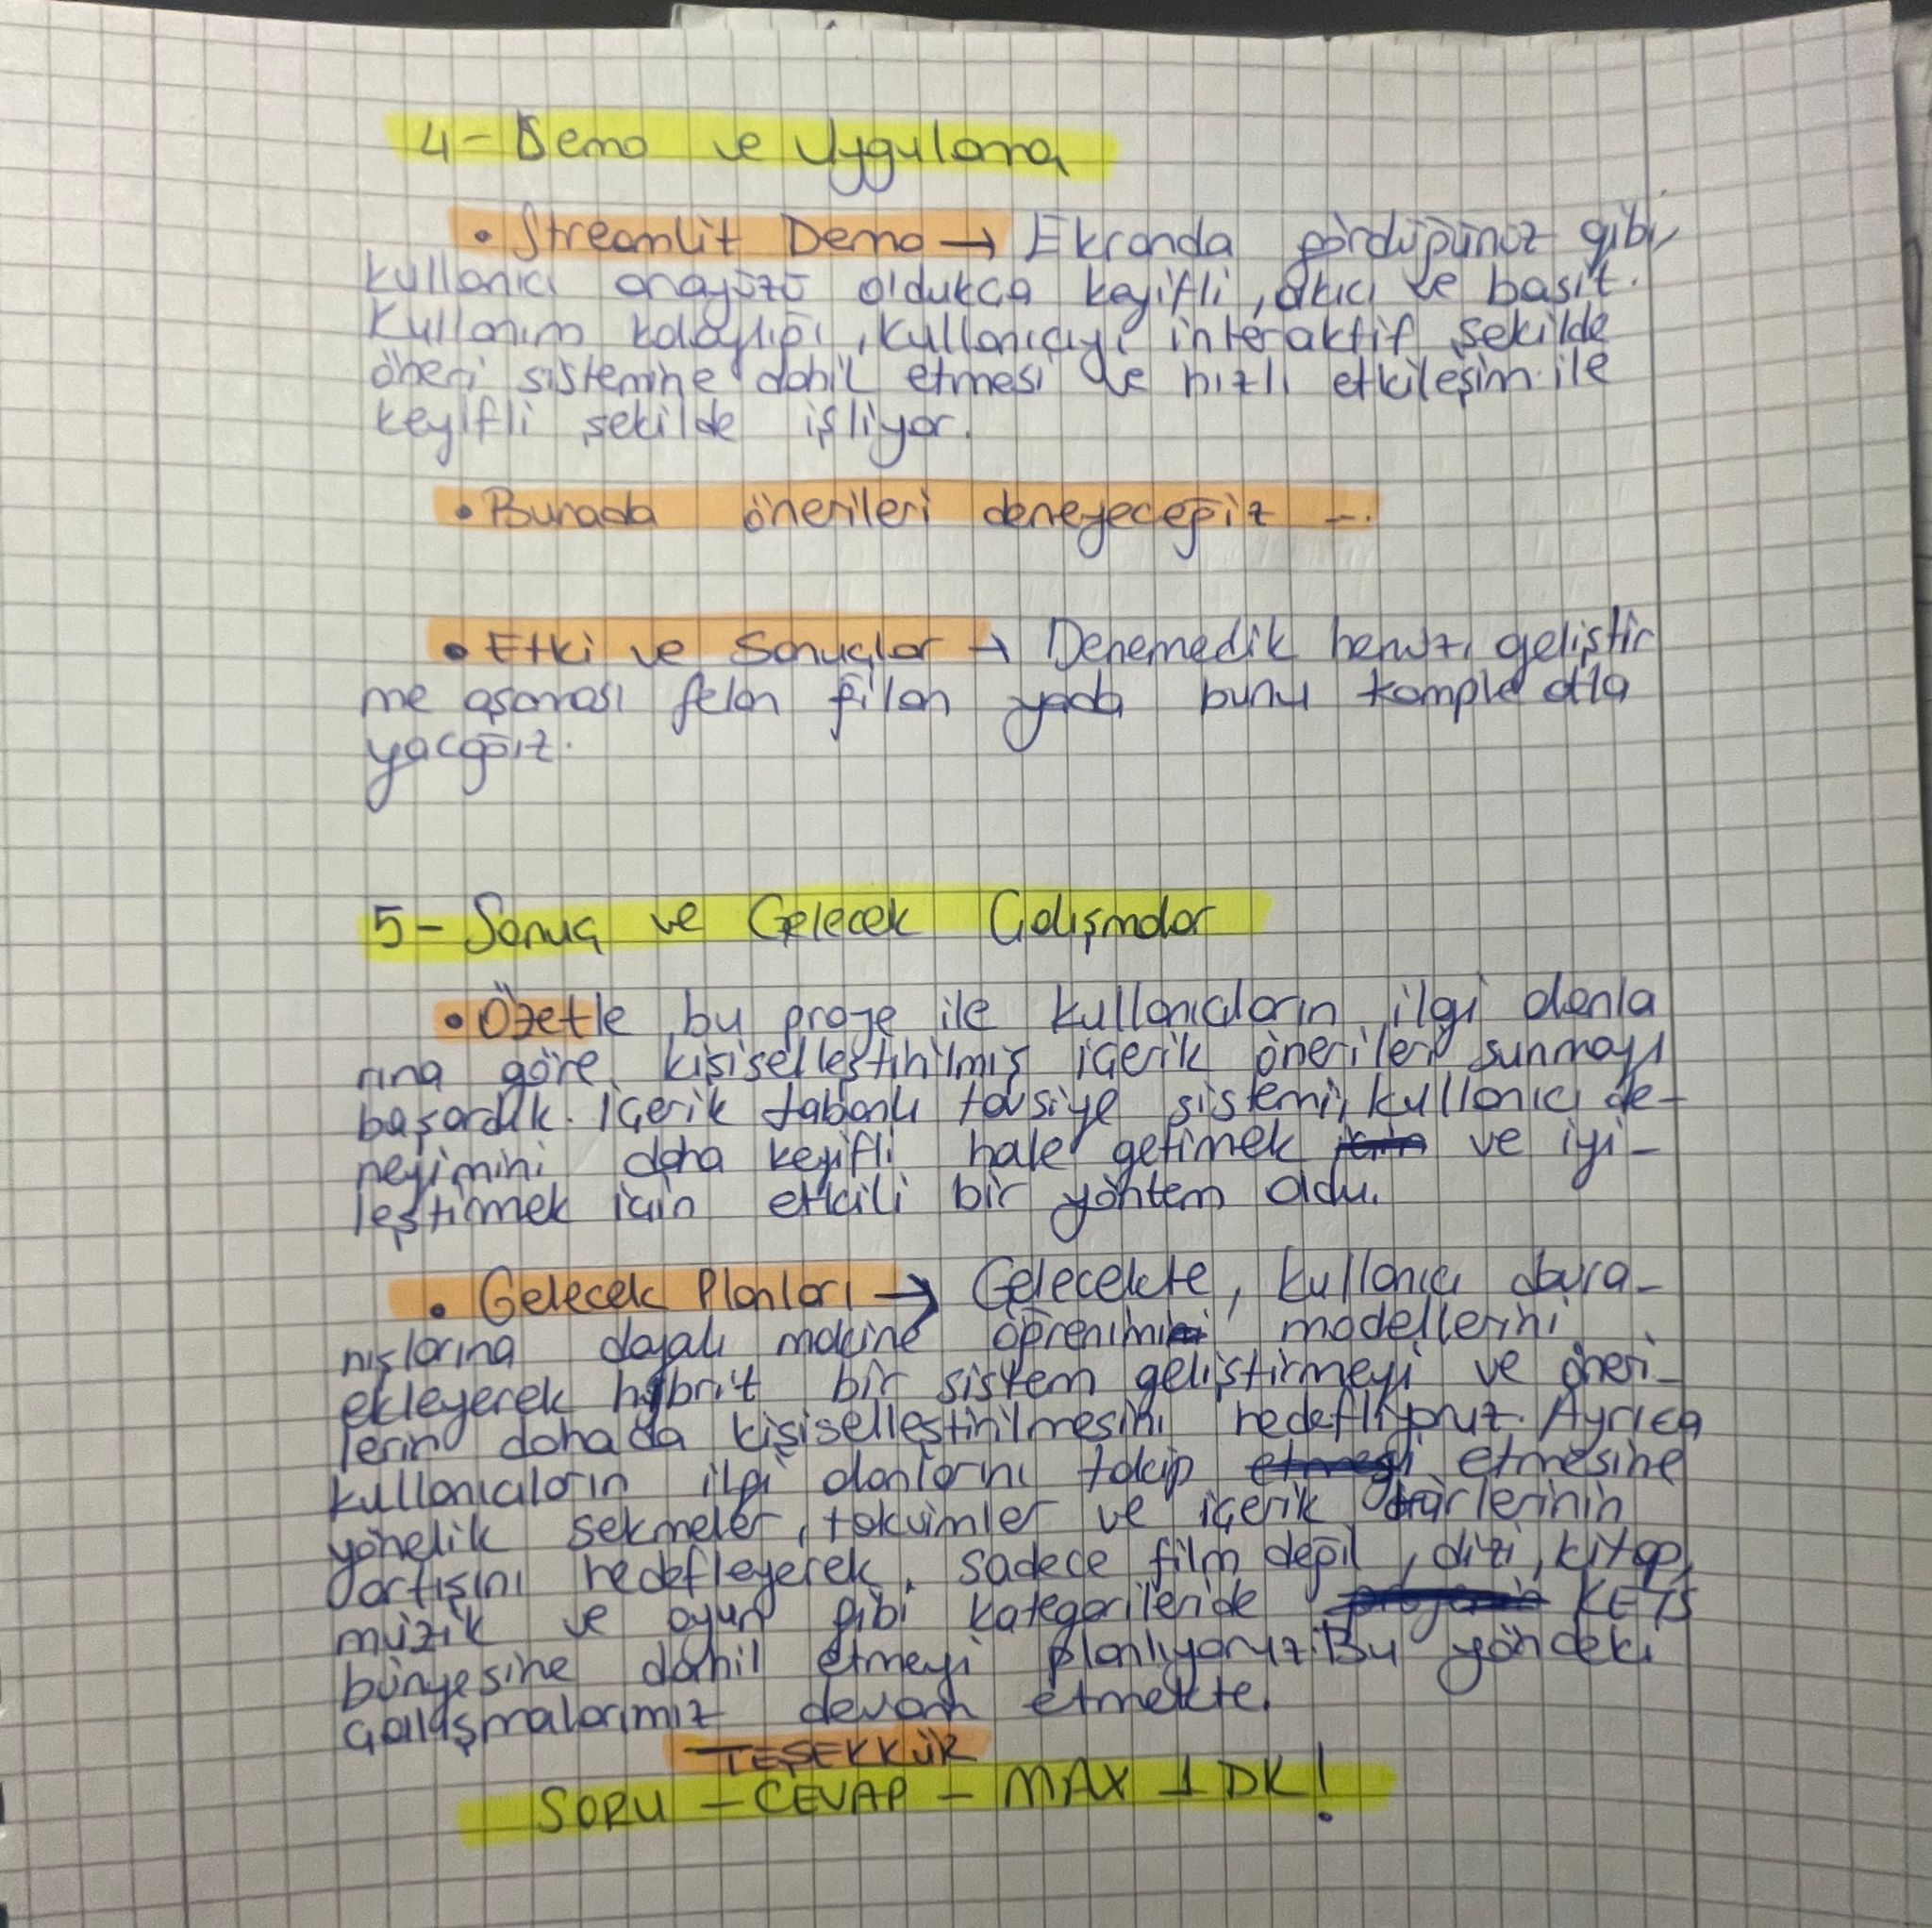 4- Demo ve Uygulama
• Streamlit Demo → Ekranda gördüğünüz gibi,
kullanıcı arayüzü oldukca keyifli, akıcı ve basit.
Kullanım kolaylığı, kullanıcıyı interaktif şekilde
öneri sistemine dahil etmesi ve hızlı etkileşim ile
keyifli şekilde işliyor.
• Burada önerileri deneyeceğiz ...
• Etki ve Sonuçlar → Denemedik henüz, geliştir
me aşaması felan filan yada bunu komple atla
yacağız.
5- Sonuç ve Gelecek Çalışmalar
• Özetle bu proje ile kullanıcıların ilgi alanla
rına göre kişiselleştirilmiş içerik önerileri sunmayı
başardık. İçerik tabanlı tavsiye sistemi, kullanıcı de-
neyimini daha keyifli hale getirmek ve iyi-
leştirmek için etkili bir yöntem oldu.
• Gelecek Planları → Gelecekte, kullanıcı davra-
nışlarına dayalı makine öğrenimi modellerini
ekleyerek hibrit bir sistem geliştirmeyi ve öneri-
lerin dahada kişiselleştirilmesini hedefliyoruz. Ayrıca
kullanıcıların ilgi alanlarını takip etmesine
yönelik sekmeler, takvimler ve içerik türlerinin
artışını hedefleyerek, sadece film değil, dizi, kitap,
müzik ve oyun gibi kategorileride KETS
bünyesine dahil etmeyi planlıyoruz. Bu yöndeki
çalışmalarımız devam etmekte.
TEŞEKKÜR
SORU - CEVAP - MAX 1 DK!